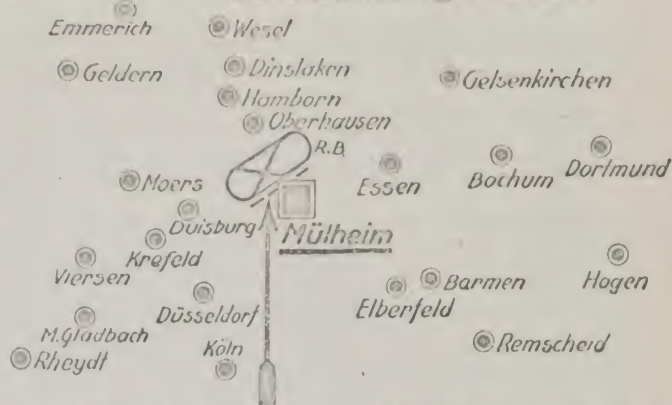 Emmerich
Wesel
Geldern
Dinslaken
Gelsenkirchen
Hamborn
Oberhausen
R.B.
Moers
Essen
Bochum
Dortmund
Duisburg
Mülheim
Krefeld
Viersen
Barmen
Hagen
Düsseldorf
Elberfeld
M.Gladbach
Köln
Remscheid
Rheydt